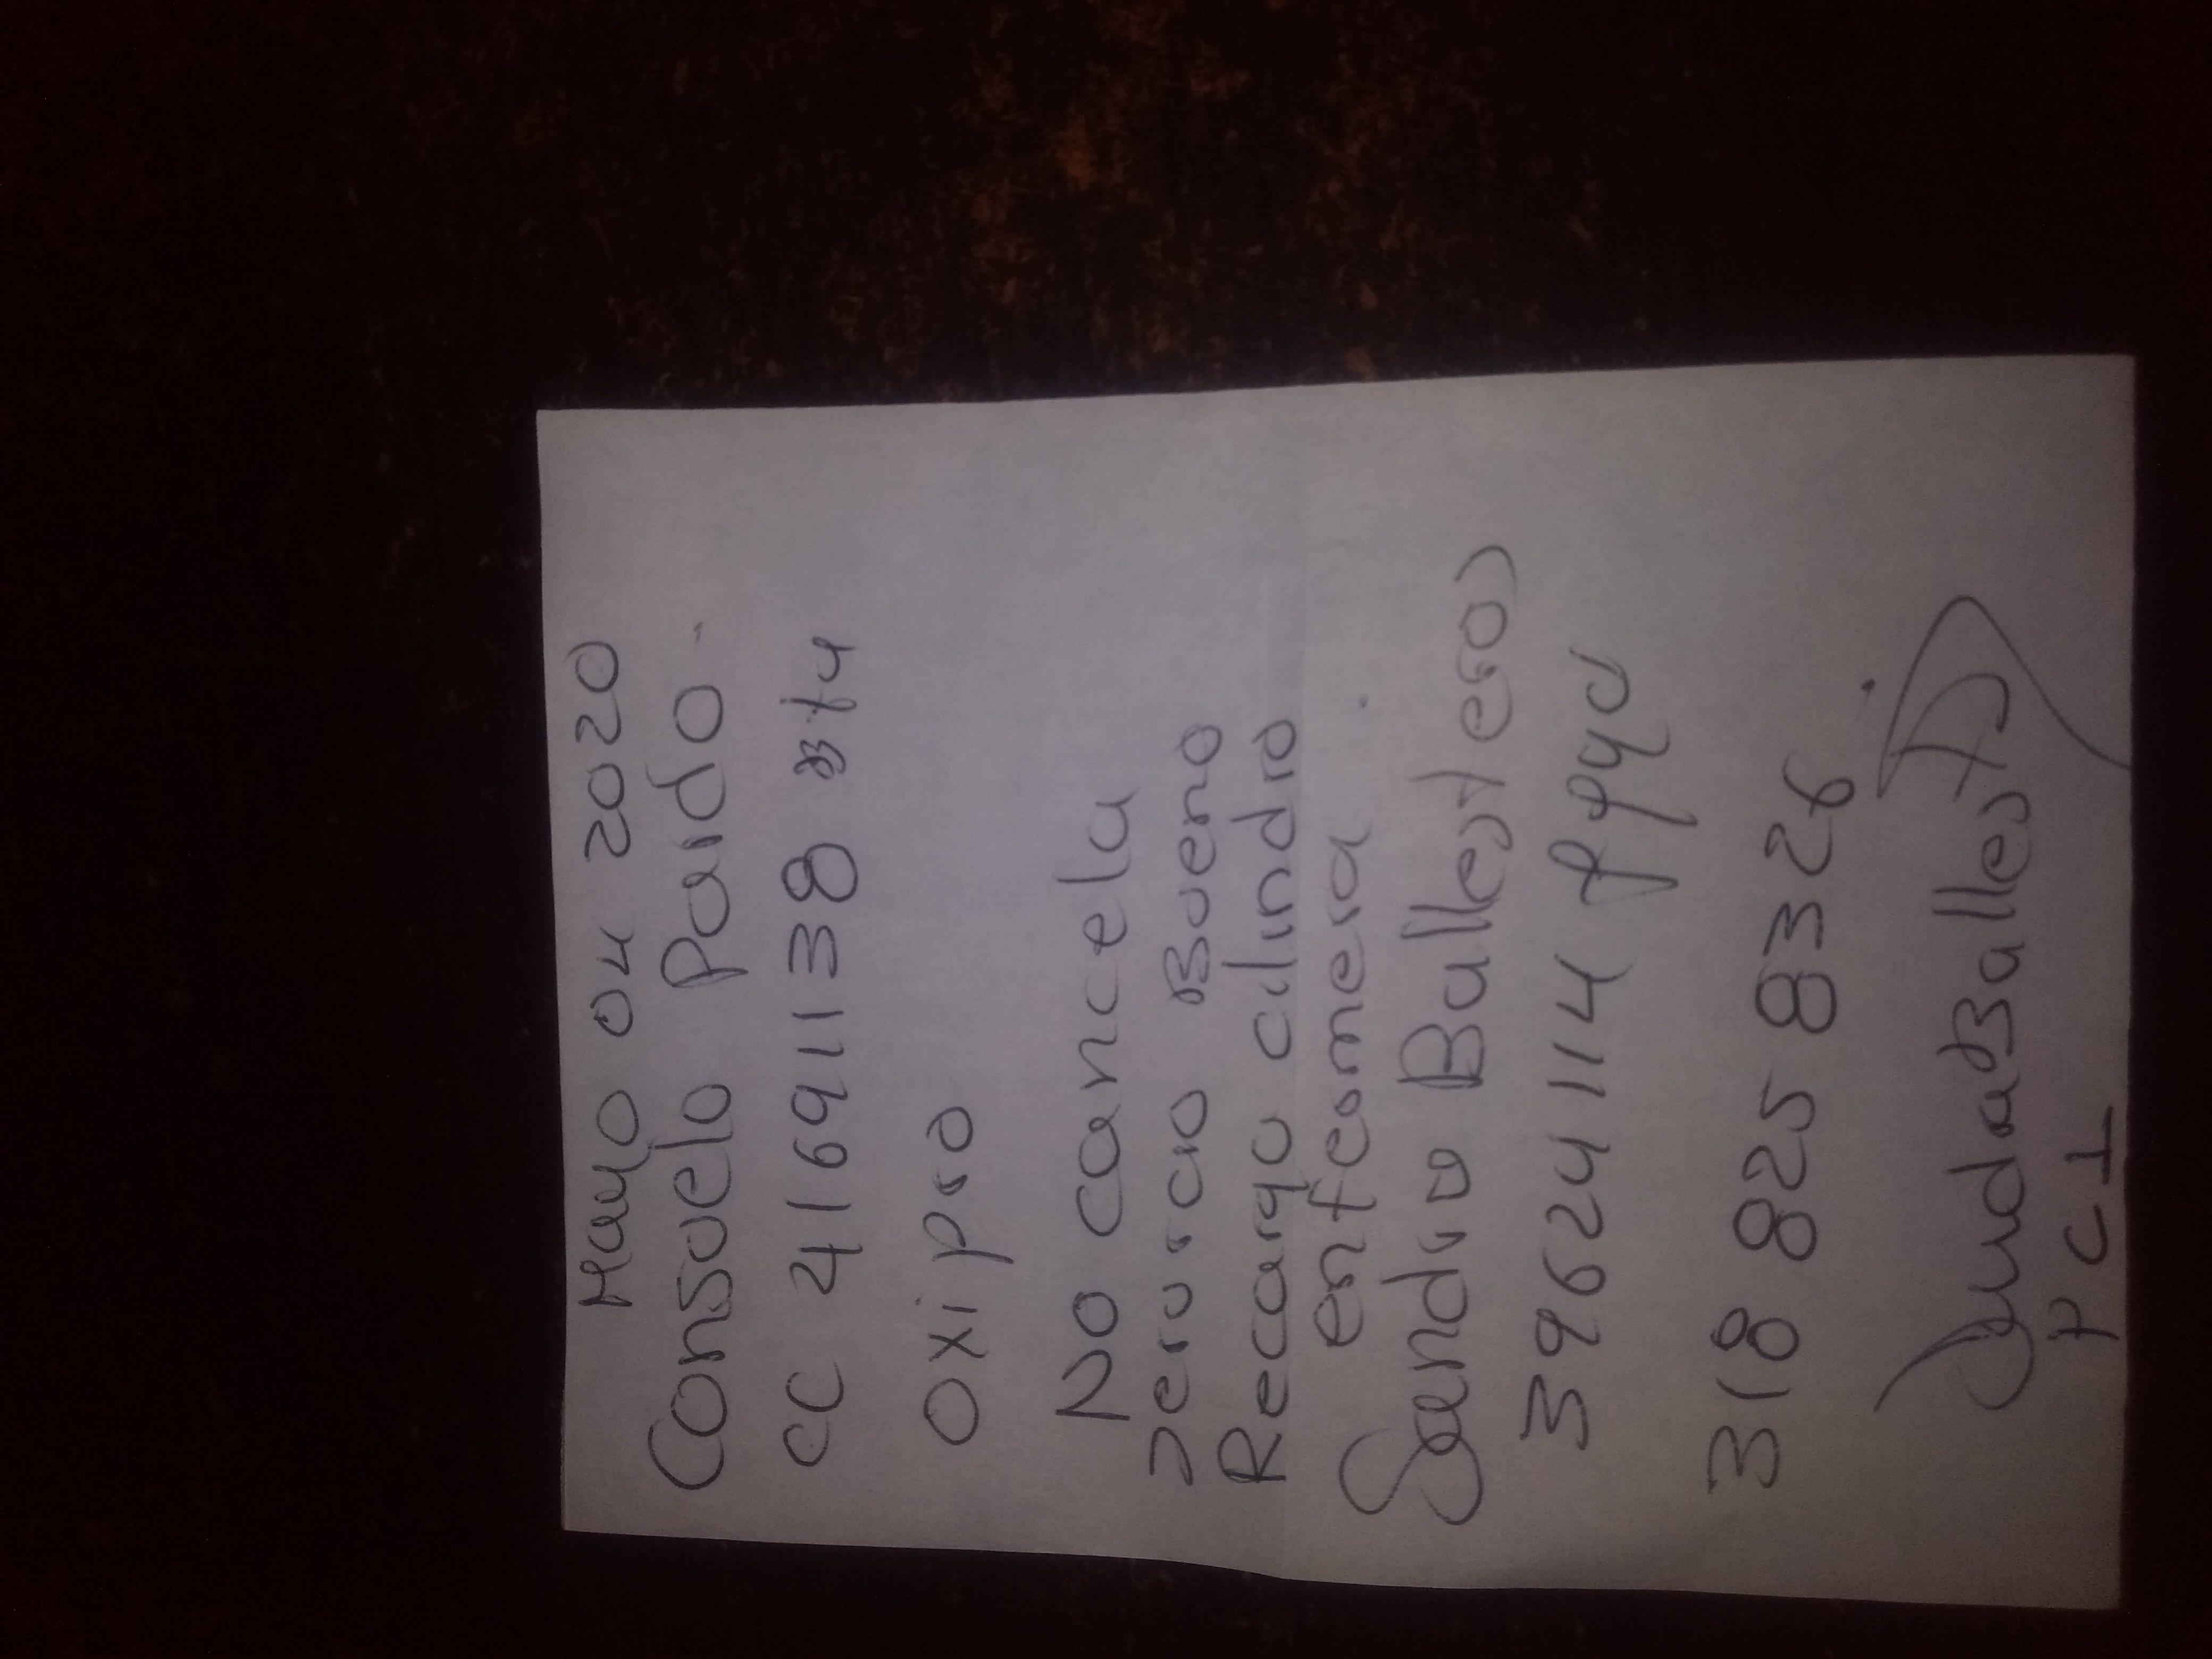 Mayo 04 2020
Consuelo Pardo.
CC 41691138 Bta
oxipro
No cancela
servicio Bueno
Recargo cilindro
enfermera.
Sandra Ballesteros
39624114 Fgga
318 825 8326.
Sandra Ballest